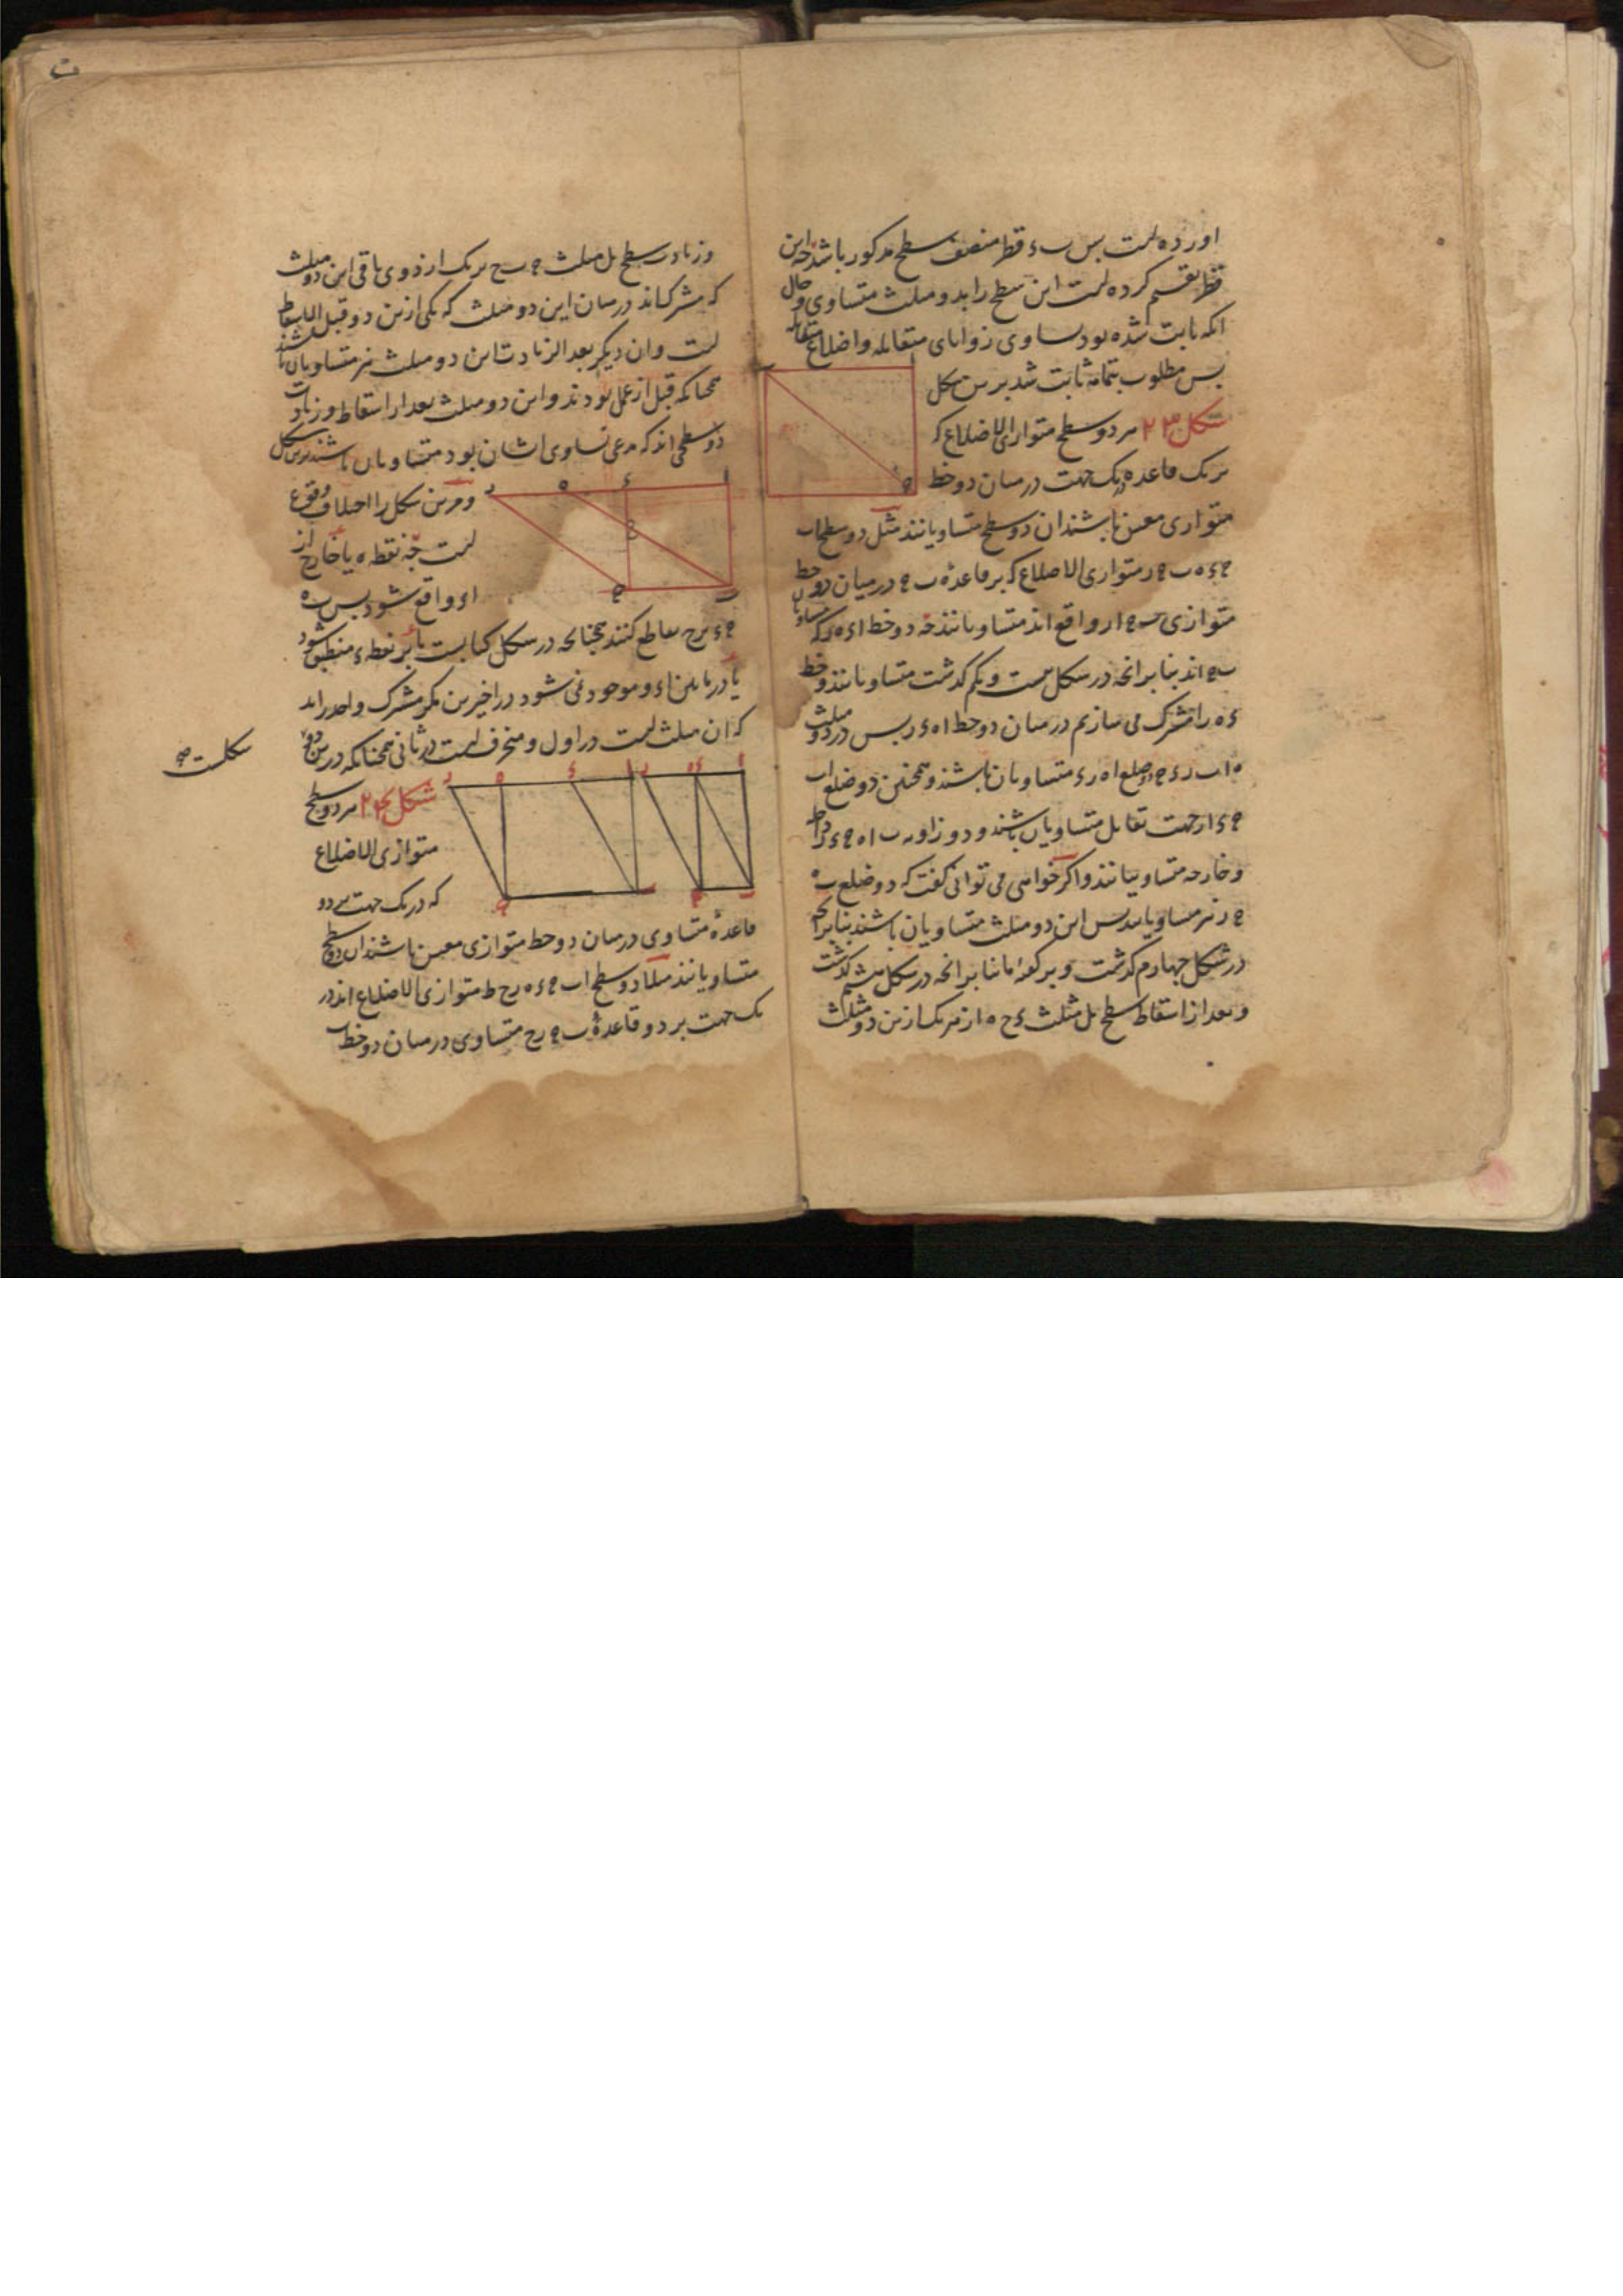 اورده است پس ب ء قطر منصف سطح مذکور باشد چه این
قطر تقسیم کرده است این سطح را بدو مثلث متساوی و حال
انکه ثابت شده بود تساوی زوایای متقابله و اضلاع متقابله
پس مطلوب بتمامه ثابت شد برین شکل
شکل ٢٣ هر دو سطح متوازی الاضلاع که
بر یک قاعده در یک جهت در میان دو خط
متوازی معین باشند ان دو سطح متساویانند مثل دو سطح اب
ج ء ه ب ج ر متوازی الاضلاع که بر قاعدهٔ ب ج در میان دو خط
متوازی ب ج ا ر واقع اند متساویانند چه دو خط ا ء ه ر که مساوی
ب ج اند بنا برانچه در شکل بیست و یکم کذشت متساویانند و خط
ء ه را مشترک می سازیم در میان دو خط ا ه ء ر پس در دو مثلث
ه ا ب ر ء ج دو ضلع ا ه ر ء متساویان باشند و همچنین دو ضلع اب
ج ء از جهت تقابل متساویان باشند و دو زاویه ب ا ه ج ء ر داخله
و خارجه متساویانند و اکر خواهی می توانی کفت که دو ضلع ب ه
ج ر نیز متساویانند پس این دو مثلث متساویان باشند بنا برانچه
در شکل چهارم کذشت و بر کفته اما بنا برانچه در شکل هشتم کذشت
و بعد از اسقاط سطح بل مثلث ء ح ه از هر یک ازین دو مثلث
وزیادت سطح بل مثلث ج ب ح بر یک از ذوی باقی این دو مثلث
که مشترک اند در میان این دو مثلث که یکی ازین دو قبل الاسقاط
است و ان دیکر بعد الزیادت این دو مثلث نیز متساویان باشند
همچنانکه قبل از عمل بودند و این دو مثلث بعد از اسقاط و زیادت
دو سطحی اند که مدعی تساوی ایشان بود متساویان باشند برین شکل
و مر این شکل را اختلاف وقوع
است چه نقطه ه یا خارج از
ا ء واقع شود پس ب ه
ج ء برح تقاطع کنند همچنانکه در شکل کتابست یا بر نقطه ء منطبق شود
یا در مابین ا ء و موجود نمی شود در اخیرین مکر مشترک واحد زاید
که ان مثلث است در اول و منحرف است در ثانی همچنانکه درین دو
شکلست صح
شکل ٢٤ هر دو سطح
متوازی الاضلاع
که در یک جهت بر دو
قاعدهٔ متساوی در میان دو خط متوازی معین باشند ان دو سطح
متساویانند مثلا دو سطح اب ج ء ه ر ح ط متوازی الاضلاع اند در
یک جهت بر دو قاعدهٔ ب ج ر ح متساوی در میان دو خط